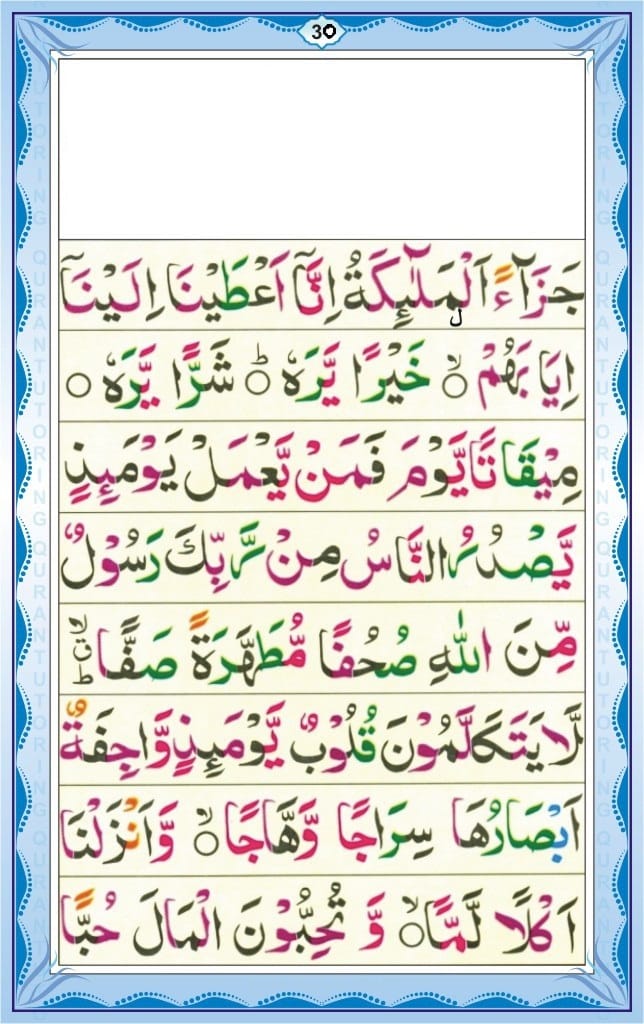 30
جَزَآءً اَلْمَلٰٓئِكَةُ اِنَّآ اَعْطَيْنَا اِلَيْنَآ
اِيَا بَهُمْ ۙ خَيْرًا يَّرَهٗ ؕ شَرًّا يَّرَهٗ
مِيْقَا تًا يَّوْمَ فَمَنْ يَّعْمَلْ يَوْمَئِذٍ
يَّصْدُرُ النَّاسُ مِنْ رَّبِّكَ رَسُوْلٌ
مِّنَ اللّٰهِ صُحُفًا مُّطَهَّرَةً صَفًّا ؕ
لَّا يَتَكَلَّمُوْنَ قُلُوْبٌ يَّوْمَئِذٍ وَّاجِفَةٌ
اَبْصَارُهَا سِرَاجًا وَّهَّاجًا ۙ وَّ اَنْزَلْنَا
اَكْلًا لَّمًّا ۙ وَّ تُحِبُّوْنَ الْمَالَ حُبًّا
QURAN TUTORING